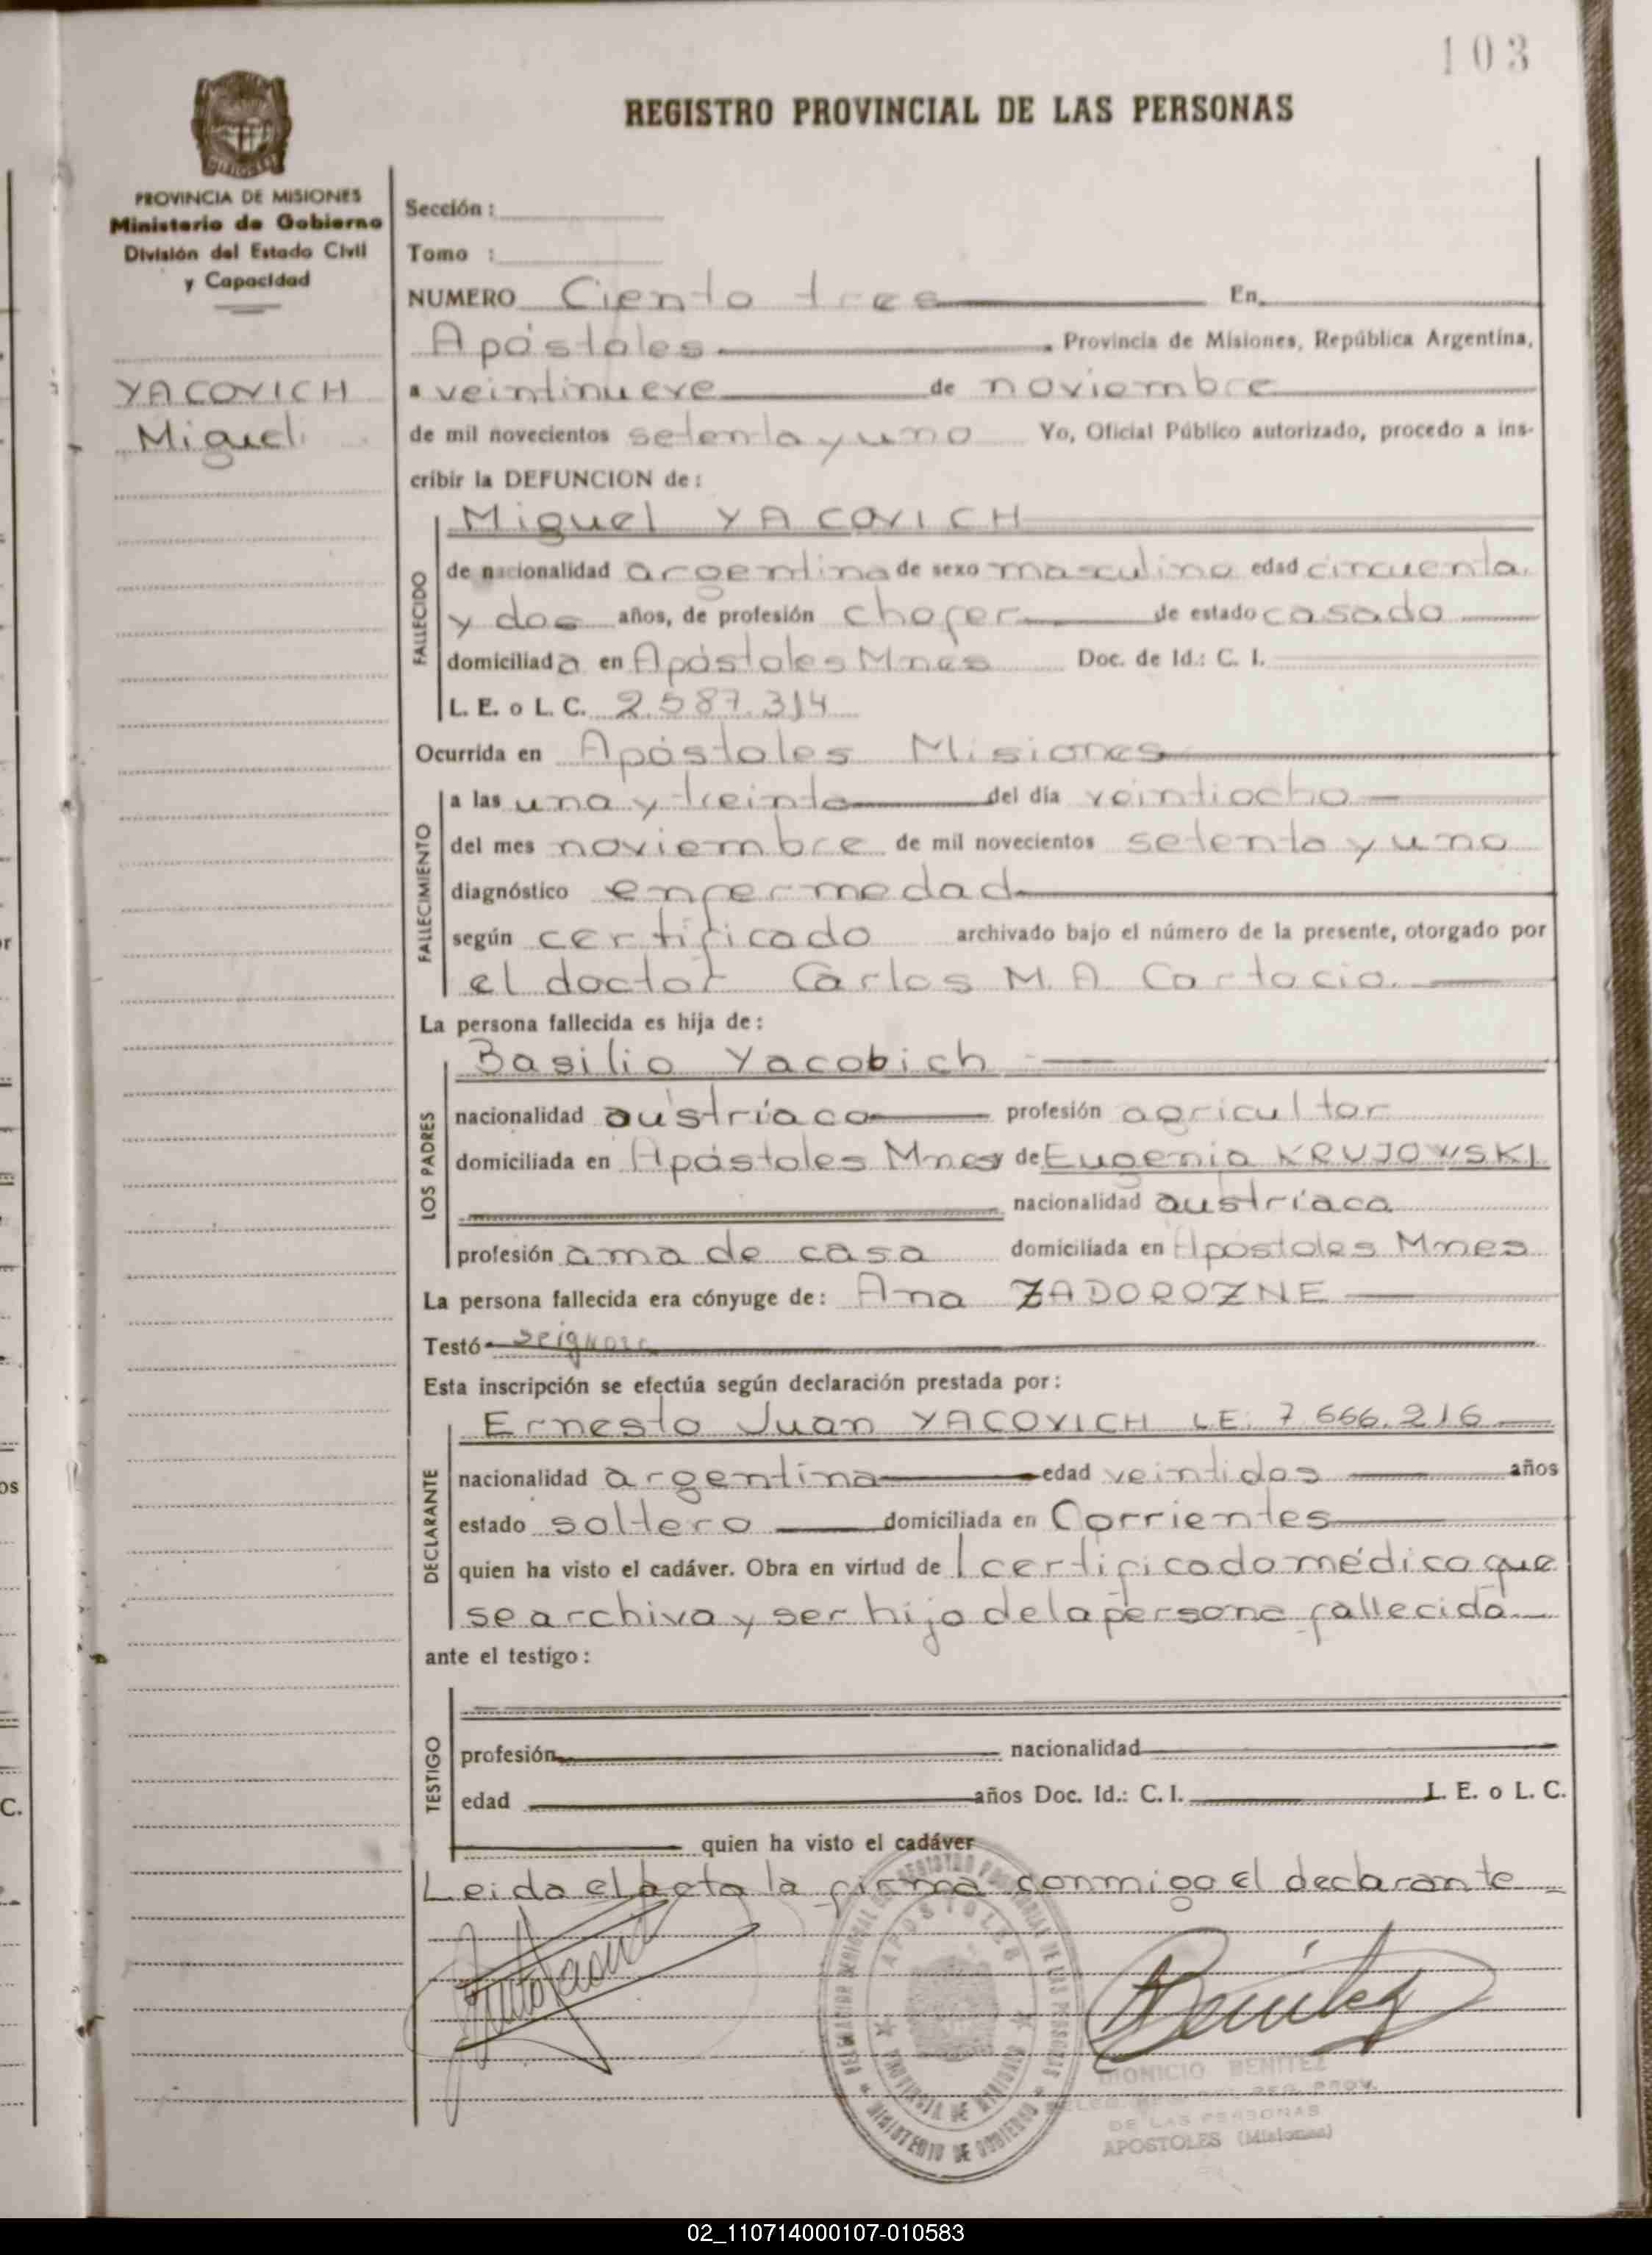 103
REGISTRO PROVINCIAL DE LAS PERSONAS
MISIONES
PROVINCIA DE MISIONES
Ministerio de Gobierno
División del Estado Civil
y Capacidad
YACOVICH
Miguel
Sección :
Tomo :
NUMERO Ciento tres En
Apóstoles Provincia de Misiones, República Argentina,
a veintinueve de noviembre
de mil novecientos setenta y uno Yo, Oficial Público autorizado, procedo a ins-
cribir la DEFUNCION de :
FALLECIDO
Miguel YACOVICH
de nacionalidad argentina de sexo masculino edad circuenta
y dos años, de profesión chofer de estado casado
domiciliada en Apóstoles Mnes Doc. de Id.: C. I.
L. E. o L. C. 2.587.314
Ocurrida en Apóstoles Misiones
FALLECIMIENTO
a las una y treinta del día veintiocho
del mes noviembre de mil novecientos setenta y uno
diagnóstico enfermedad
según certificado archivado bajo el número de la presente, otorgado por
el doctor Carlos M. A. Cartocio.
La persona fallecida es hija de :
LOS PADRES
Basilio Yacobich
nacionalidad austríaco profesión agricultor
domiciliada en Apóstoles Mnes y de Eugenia KRUJOWSKI
nacionalidad austríaca
profesión ama de casa domiciliada en Apóstoles Mnes
La persona fallecida era cónyuge de : Ana ZADOROZNE
Testó
Esta inscripción se efectúa según declaración prestada por :
DECLARANTE
Ernesto Juan YACOVICH LE: 7.666.216
nacionalidad argentina edad veintidos años
estado soltero domiciliada en Corrientes
quien ha visto el cadáver. Obra en virtud de certificado médico que
se archiva y ser hijo de la persona fallecida
ante el testigo :
TESTIGO
profesión nacionalidad
edad años Doc. Id.: C. I. L. E. o L. C.
quien ha visto el cadáver
Leida el acta la firma conmigo el declarante
APOSTOLES
PROVINCIA DE MISIONES
MINISTERIO DE GOBIERNO
Benitez
DIONICIO BENITEZ
DE LAS PERSONAS
APOSTOLES (Misiones)
02_110714000107-010583